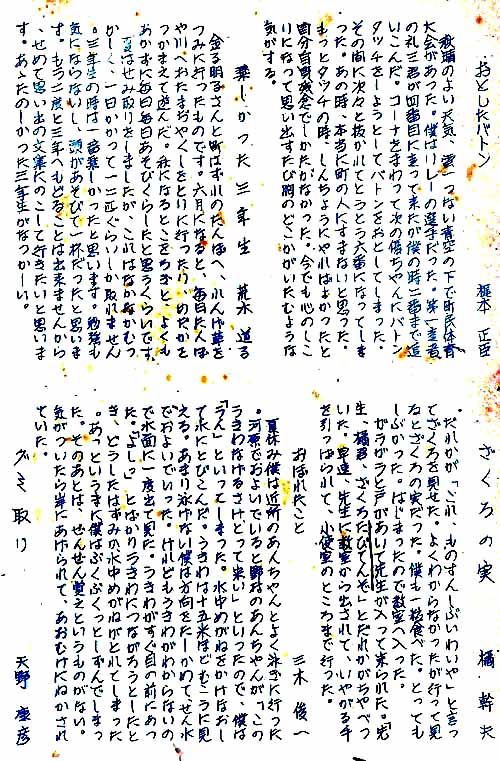 おとしたバトン　梶本 正臣
秋晴のよい天気、雲一つない青空の下で町民体育
大会があった。僕はリレーの選手だった。第一走者
の礼三君が四番目に走って来たが僕の時二番まで追
いこんだ。コーナをまわって次の傷ちゃんにバトン
タッチをしようとしてバトンをおとしてしまった。
その間に次々と抜かれてとうとう六番になってしま
った。あの時、本当に町の人にすまないと思った。
もっとタッチの時、しんちょうにやればよかったと
自分自身残念でしかたがなかった。今でも心のしこ
りになって思い出すたび胸のどこかがいたむような
気がする。
楽しかった三年生　荒木 道る
金る明子さんと町はずれのたんぼへ、れんげ草を
つみに行ったものです。六月になると、毎日たんぼ
や川へおたまじゃくしをとりに行ったり、めだかを
つかまえて遊んだ。秋になるとこをろぎと、よくも
あかずに毎日毎日あそびくらしたと思うくらいです。
夏はせみ取りをしましたが、これはなかなかむつ
かしく、一日かかって一二匹ぐらいしか取れません
。三年生の時は一番楽しかったと思います。勉強も
気にならないし、頭があそびで一杯だったと思いま
す。もう二度と三年へもどることは出来ませんから
、せめて思い出の文集にのこして行きたいと思いま
す。あゝたのしかった三年生がなつかしい。
ざくろの実　橘 幹夫
だれかが「これ、ものすんごしぶいわいや」と言っ
てざくろを見せた。よくわからなかったが行って見
るとざくろの実だった。僕も一粒食べた。とっても
しぶかった。はじまったので教室へ入った。
ガラガラと戸があいて先生が入って来られた。「先
生、橘君、ざくろたびてんぞ」とだれかがちゃべっ
いた。早速、先生に教室から出されて、いやがる手
を引っぱられて、小使室のところまで行った。
おぼれたこと　三木 俊一
夏休み僕は近所のあんちゃんとよく泳ぎに行った
。河原でおよいでいると野村のあんちゃんが「この
うきわなげるさけとって来い」といったので、僕は
「うん」といってしまった。水中めがねをかけなおし
て水にとびこんだ。うきわは十五米ほどむこうに見
える。あまり泳げない僕は方向をたしかめてせん水
でおよいでいった。けれどもうきわがわからないの
で水面に一度出て見た。うきわがすぐ目の前にあっ
た。「よしっ」とばかりうきわにつながろうとしたと
き、どうしたはずみか水中めがねがとれてしまった
。あっというまに僕はぶくぶくっとしずんでしまっ
た。そのあとは、ぜんぜん覚えというものがない。
気がついたら岸にあげられて、あおむけにねかされ
ていた。
グミ取り　天野 康彦